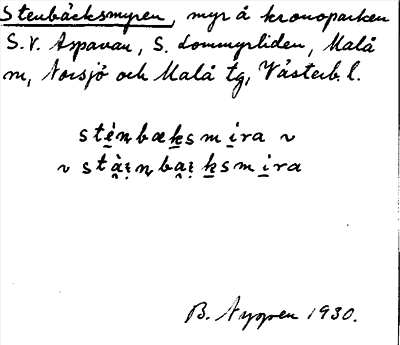 Stenbäcksmyren, myr å kronoparken
S.V. Aspavan, S. Lommyrliden, Malå
m, Norsjö och Malå tg, Västerb. l.
sténbæksmira ~
~ stàinbaiksmira
B. Nyppen 1930.